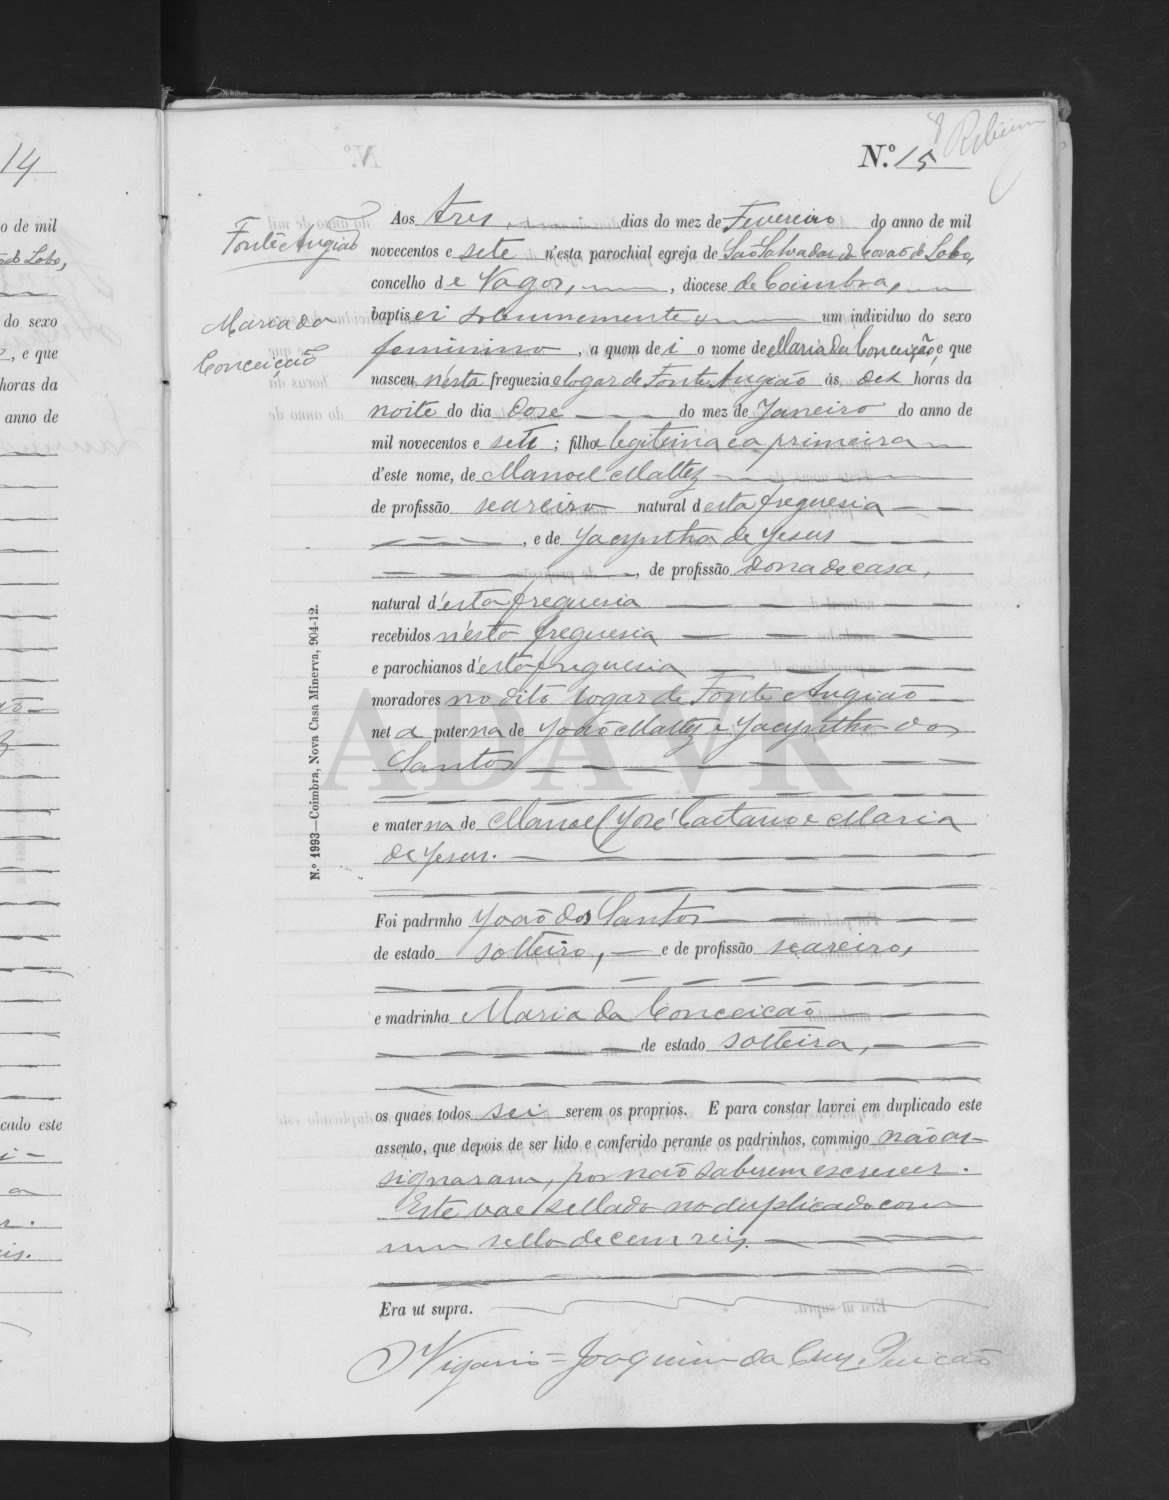 14
o de mil
do Lobo,
do sexo
, e que
horas da
anno de
cado este
N.º 15
8 Ribeiro
Fonte Angião
Maria da
Conceição
Aos tres dias do mez de Fevereiro do anno de mil
novecentos e sete n'esta parochial egreja de São Salvador de Covão do Lobo,
concelho de Vagos, , diocese de Coimbra,
baptisei solemnemente um individuo do sexo
feminino , a quem dei o nome de Maria da Conceição, e que
nasceu n'esta freguezia e logar de Fonte Angião ás dez horas da
noite do dia dose do mez de Janeiro do anno de
mil novecentos e sete ; filha legitima e a primeira
d'este nome, de Manoel Mattez
de profissão seareiro natural d'esta freguesia
, e de Jacyntha de Jesus
, de profissão dona de casa,
natural d'esta freguesia
recebidos n'esta freguesia
e parochianos d'esta freguesia
moradores no dito logar de Fonte Angião
neta paterna de João Mattez e Jacyntha dos
Santos
e materna de Manoel José Caetano e Maria
de Jesus.
Foi padrinho João dos Santos
de estado solteiro, e de profissão seareiro,
e madrinha Maria da Conceicão
de estado solteira,
os quaes todos sei serem os proprios. E para constar lavrei em duplicado este
assento, que depois de ser lido e conferido perante os padrinhos, commigo não as-
signaram, por não saberem escrever.
Este vae sellado no duplicado com
um sello de cem reis.
Era ut supra.
O Vigario = Joaquim da Cruz
N.º 1993—Coimbra, Nova Casa Minerva, 904-12.
ADAVR